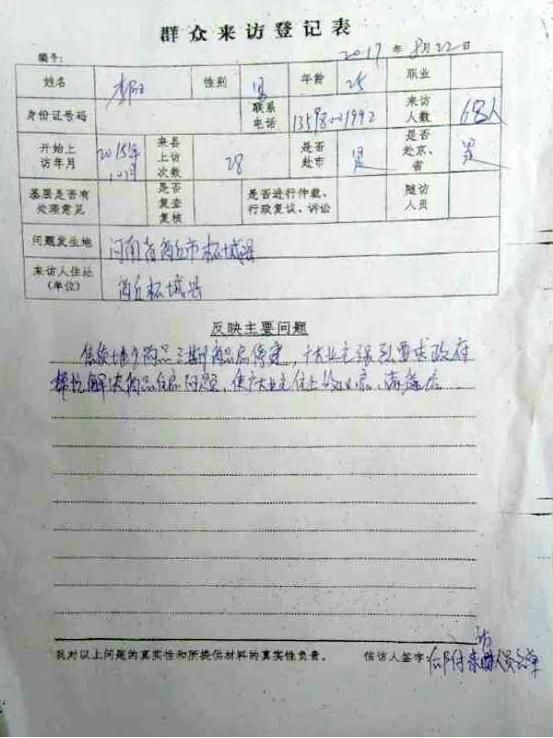 群众来访登记表
编号： 2017 年 8月22日
姓名 性别 男 年龄 25 职业
身份证号码 联系电话 来访人数 68人
开始上访年月 2015年10月 来县上访次数 28 是否赴市 是 是否赴京、省 是
基层是否有处理意见 是否复查复核 是否进行仲裁、行政复议、诉讼 随访人员
问题发生地 河南省商丘市柘城县
来访人住址（单位） 商丘柘城县
反映主要问题
商品房停建，广大业主强烈要求政府
解决商品住房问题，使广大业主住上
我对以上问题的真实性和所提供材料的真实性负责。 信访人签字：